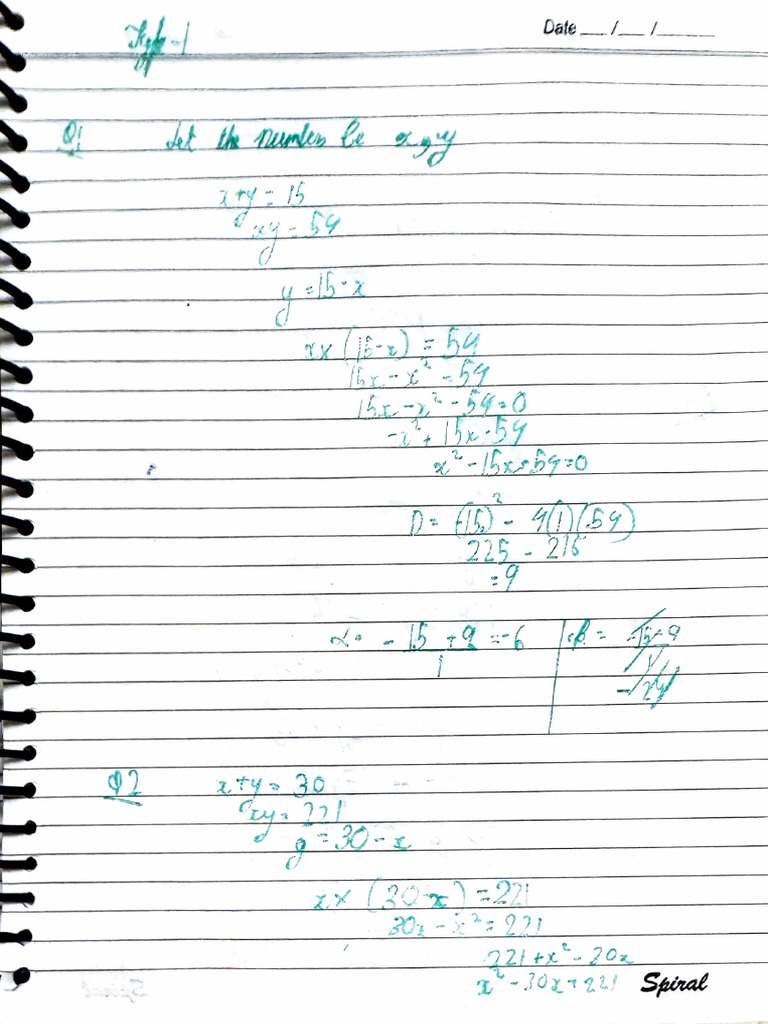 Type-1
Date __/__/____
Q1 Let the numbers be x, y
x+y = 15
xy = 54
y = 15-x
x× (15-x) = 54
15x - x² = 54
15x - x² - 54 = 0
-x² + 15x - 54
x² - 15x + 54 = 0
D = (-15)² - 4(1)(54)
225 - 216
= 9
α = -15 + 9 = -6 β = -15-9
1
Q2 x+y = 30
xy = 221
y = 30 - x
x× (30-x) = 221
30x - x² = 221
221 + x² - 30x
x² - 30x + 221
Spiral